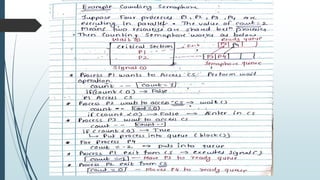 Example: Counting Semaphore
Suppose Four processes P1, P2, P3, P4 are
executing in parallel. The value of count = 2
Means two resources are shared betn processes
Then Counting Semaphore works as below
Wait() ready queue
Critical Section exit
P1 P3 P4
P2
Signal() Semaphore queue
Process P1 wants to Access CS. Perform wait
operation.
count -- count = 1
if (count < 0) → False
P1 Access CS
Process P2 want to access CS → wait()
count -- count = 0
if (count < 0) → False → Enter in CS
Process P3 want to access CS
count -- count = -1
if (count < 0) → True
Put process into queue (block())
For Process P4
count = -2 → puts into queue
Process P1 exit from CS → executes signal()
count = -1 → Move P3 to ready queue
Process P2 exit from CS
count = 0 → Moves P4 to ready queue